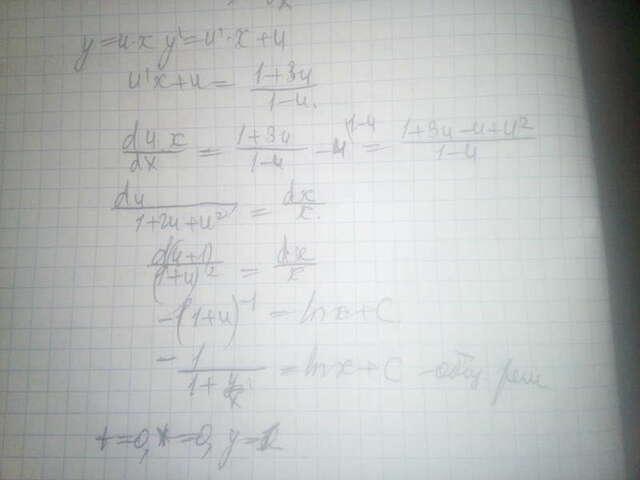 y=u·x y'=u'·x+u
u'x+u = (1+3u)/(1-u)
(du x)/dx = (1+3u)/(1-u) - u^(1-u) = (1+3u-u+u²)/(1-u)
du/(1+2u+u²) = dx/x
d(u+1)/(1+u)² = dx/x
-(1+u)^-1 = ln x + C
- 1/(1+y/x) = ln x + C - общ реш
=0, =0, y=